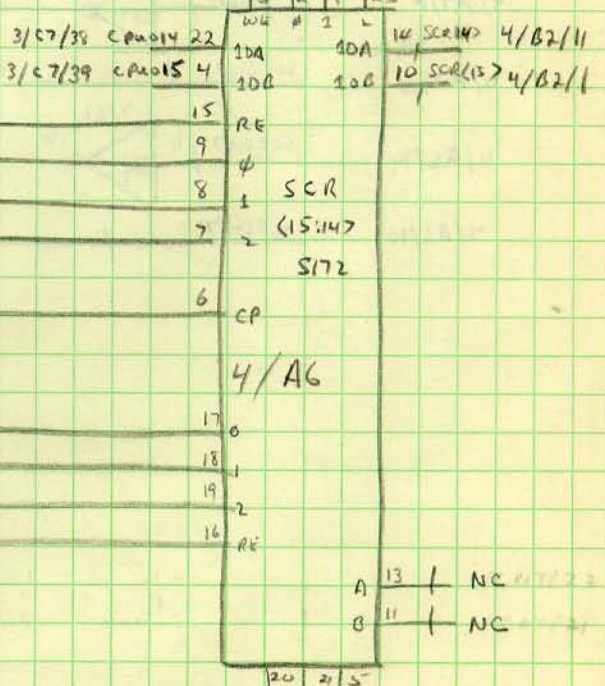 WE φ 1 2
3/C7/38 CPU014 22 1DA 1DA 14 SCR<14> 4/B2/11
3/C7/39 CPU015 4 1DB 1DB 10 SCR<15> 4/B2/1
15 RE
9 φ
8 1 SCR
7 2 <15:14>
S172
6 CP
4/A6
17 0
18 1
19 2
16 RE
A 13 NC
B 11 NC
20 21 5